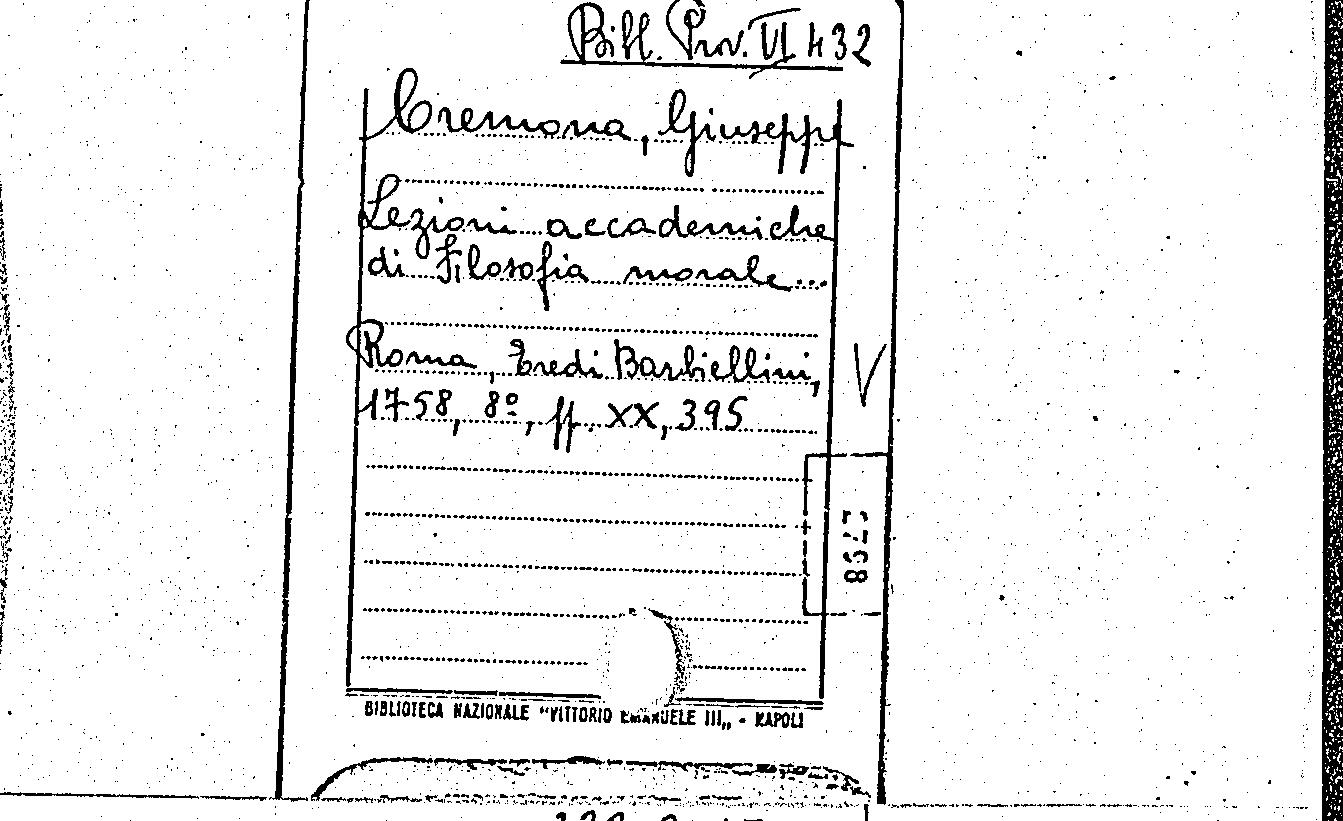 Bibl. Prov. VI 432
Cremona, Giuseppe
Lezioni accademiche
di Filosofia morale...
Roma, Eredi Barbiellini,
1758, 8º, pp. XX, 395
V
BIBLIOTECA NAZIONALE "VITTORIO EMANUELE III„ - NAPOLI